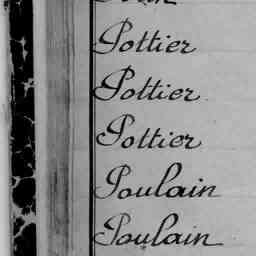 Pottier
Pottier
Pottier
Poulain
Poulain